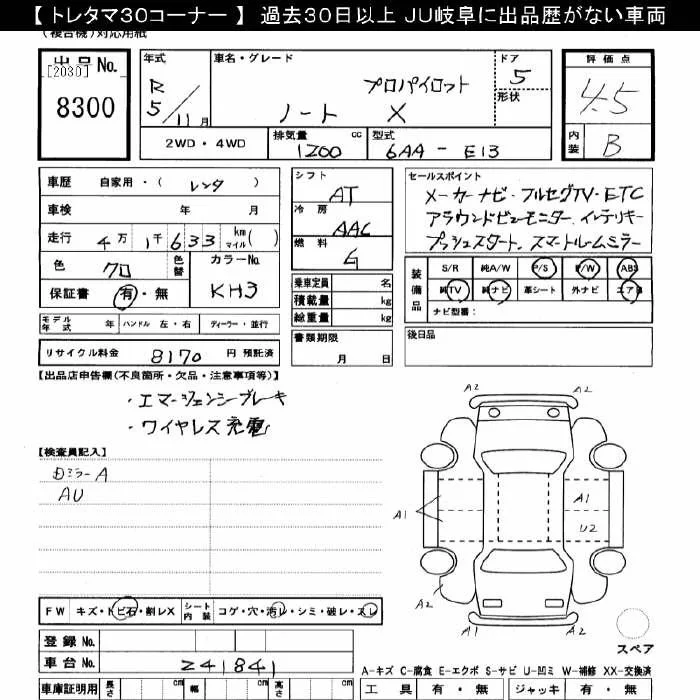 【 トレタマ30コーナー 】 過去30日以上 JU岐阜に出品歴がない車両
(複合機)対応用紙
出品No.
[2030]
8300
年式
R
5/11月
車名・グレード
プロパイロット
ノート X
ドア
5
形状
評価点
4.5
内装
B
2WD・4WD
排気量 1200 cc
型式 6AA - E13
車歴 自家用・( レンタ )
車検 年 月
走行 4万1千633 km マイル( )
色 クロ
色替
カラーNo. KH3
保証書 有・無
シフト AT
冷房 AAC
燃料 G
乗車定員 名
積載量 kg
総重量 kg
セールスポイント
メーカーナビ・フルセグTV・ETC
アラウンドビューモニター.インテリキー
プッシュスタート.スマートルームミラー
装備品
S/R 純A/W P/S P/W ABS
純TV 純ナビ 革シート 外ナビ エアB
ナビ型番:
モデル年式 年 ハンドル 左・右 ディーラー・並行
書類期限
月 日
後日品
リサイクル料金 8170 円 預託済
【出品店申告欄(不良箇所・欠品・注意事項等)】
・エマージェンシーブレーキ
・ワイヤレス充電
【検査員記入】
Dミラー A
AU
A2 A2
A1 A1
U2
A2 A2
A1 A2
スペア
FW キズ・トビ石・割レX シート内装 コゲ・穴・汚レ・シミ・破レ・スレ
登録No.
車台No. 241841
A-キズ C-腐食 E-エクボ S-サビ U-凹ミ W-補修 XX-交換済
車庫証明用 長さ cm 幅 cm 高さ cm
工具 有・無 ジャッキ 有・無